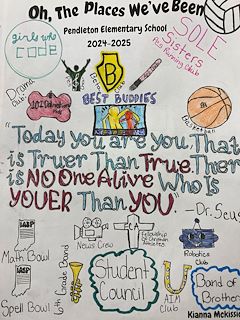 Oh, The Places We've Been
Pendleton Elementary School
2024-2025
girls who
CODE
SOLE
Sisters
PES Running Club
Drama
Club
B
BEST BUDDIES
Basketball
"Today you are you. That
is Truer Than True. Ther
is NO One Alive Who Is
YOUER Than YOU."
-Dr. Seus
IASP
Math Bowl
News Crew
FCA
Fellowship of
Christian Athletes
Robotics
Club
IASP
Spell Bowl
6th Grade Band
Student
Council
AIM
Club
Band of
Brothers
Kianna McKissic